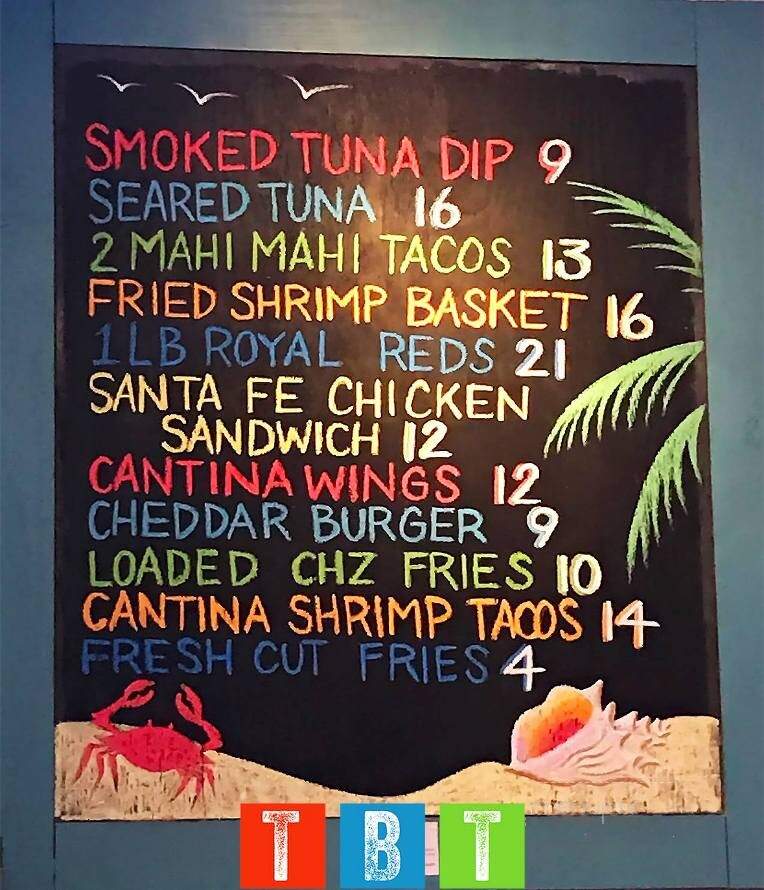 SMOKED TUNA DIP 9
SEARED TUNA 16
2 MAHI MAHI TACOS 13
FRIED SHRIMP BASKET 16
1LB ROYAL REDS 21
SANTA FE CHICKEN
SANDWICH 12
CANTINA WINGS 12
CHEDDAR BURGER 9
LOADED CHZ FRIES 10
CANTINA SHRIMP TACOS 14
FRESH CUT FRIES 4
TBT